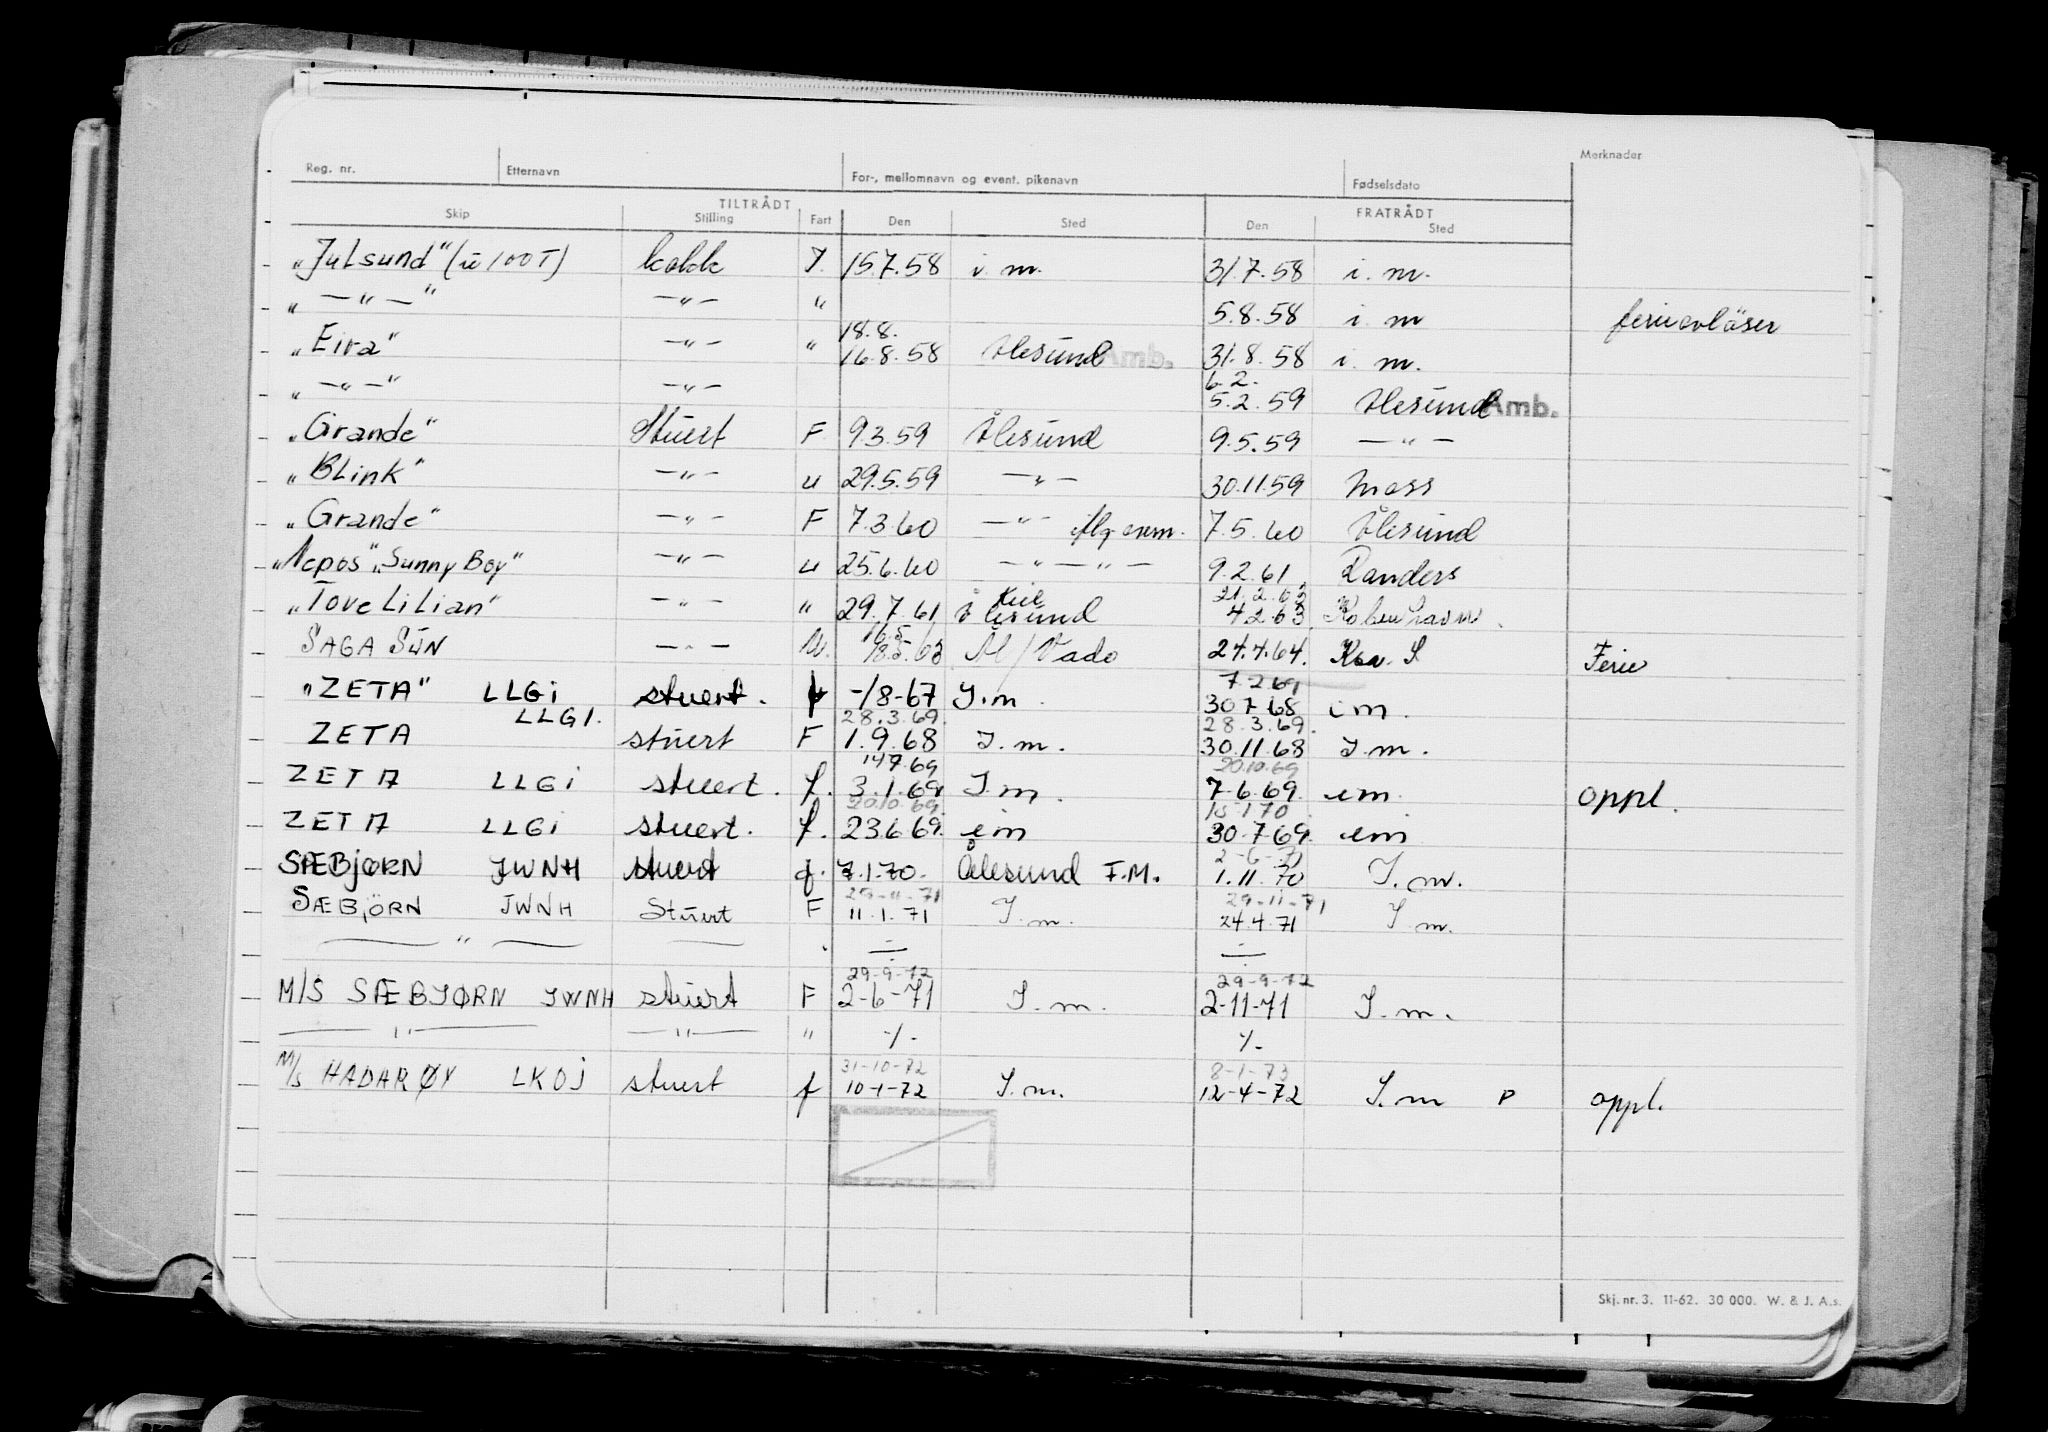 Reg. nr. Etternavn For-, mellomnavn og event. pikenavn Fødselsdato Merknader
TILTRÅDT FRATRÅDT
Skip Stilling Fart Den Sted Den Sted
"Julsund" (u 100 T) kokk J. 15.7.58 i. m. 31.7.58 i. m.
" — " — " — " — " 5.8.58 i. m ferieavløser
18.8.
"Eira" — " — " 16.8.58 Ålesund Amb. 31.8.58 i. m.
6.2.
" — " — " — " — 5.2.59 Ålesund Amb.
"Grande" Stuert F 9.3.59 Ålesund 9.5.59 — " —
"Blink" — " — u 29.5.59 — " — 30.11.59 Moss
"Grande" — " — F 7.3.60 — " — 7.5.60 Ålesund
"Nepos" "Sunny Boy" — " — u 25.6.60 — " — " — 9.2.61 Randers
Kiel 21.2.63
"Tove Lilian" — " — " 29.7.61 Ålesund 4.2.63 København
16.5.
SAGA SUN — " — U. 18.5.63 Ål / Vado 24.4.64. Ferie
7.2.69
"ZETA" LLGi stuert. f -/8-67 I.m. 30.7.68 im.
LLGI. 28.3.69. 28.3.69.
ZETA stuert F 1.9.68 I.m. 30.11.68 I.m.
14.7.69 20.10.69
ZETA LLGi stuert. f. 3.1.69 I.m. 7.6.69. im oppl.
20.10.69 15.1.70
ZETA LLGi stuert. f. 23.6.69. im 30.7.69. im
2-6-71
SÆBJØRN JWNH stuert f. 7.1.70. Ålesund F.M. 1.11.70 I.m.
29-11-71 29-11-71
SÆBJÖRN JWNH Stuert F 11.1.71 I.m. 24.4.71 I.m.
— " — —
29-9-72 29-9-72
M/S SÆBJØRN JWNH stuert F 2-6-71 I.m. 2-11-71 I.m.
— " — — " — " -/- -/-
31-10-72 8-1-73
M/S HADARØY LKOJ stuert f 10-1-72 I.m. 12-4-72 I.m P oppl.
Skj. nr. 3. 11-62. 30 000. W. & J. A.s.